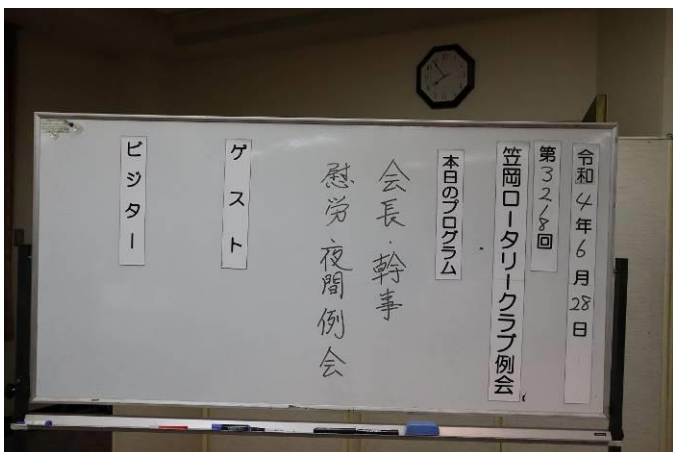 令和4年6月28日
第3218回
笠岡ロータリークラブ例会
本日のプログラム
会長・幹事
慰労夜間例会
ゲスト
ビジター